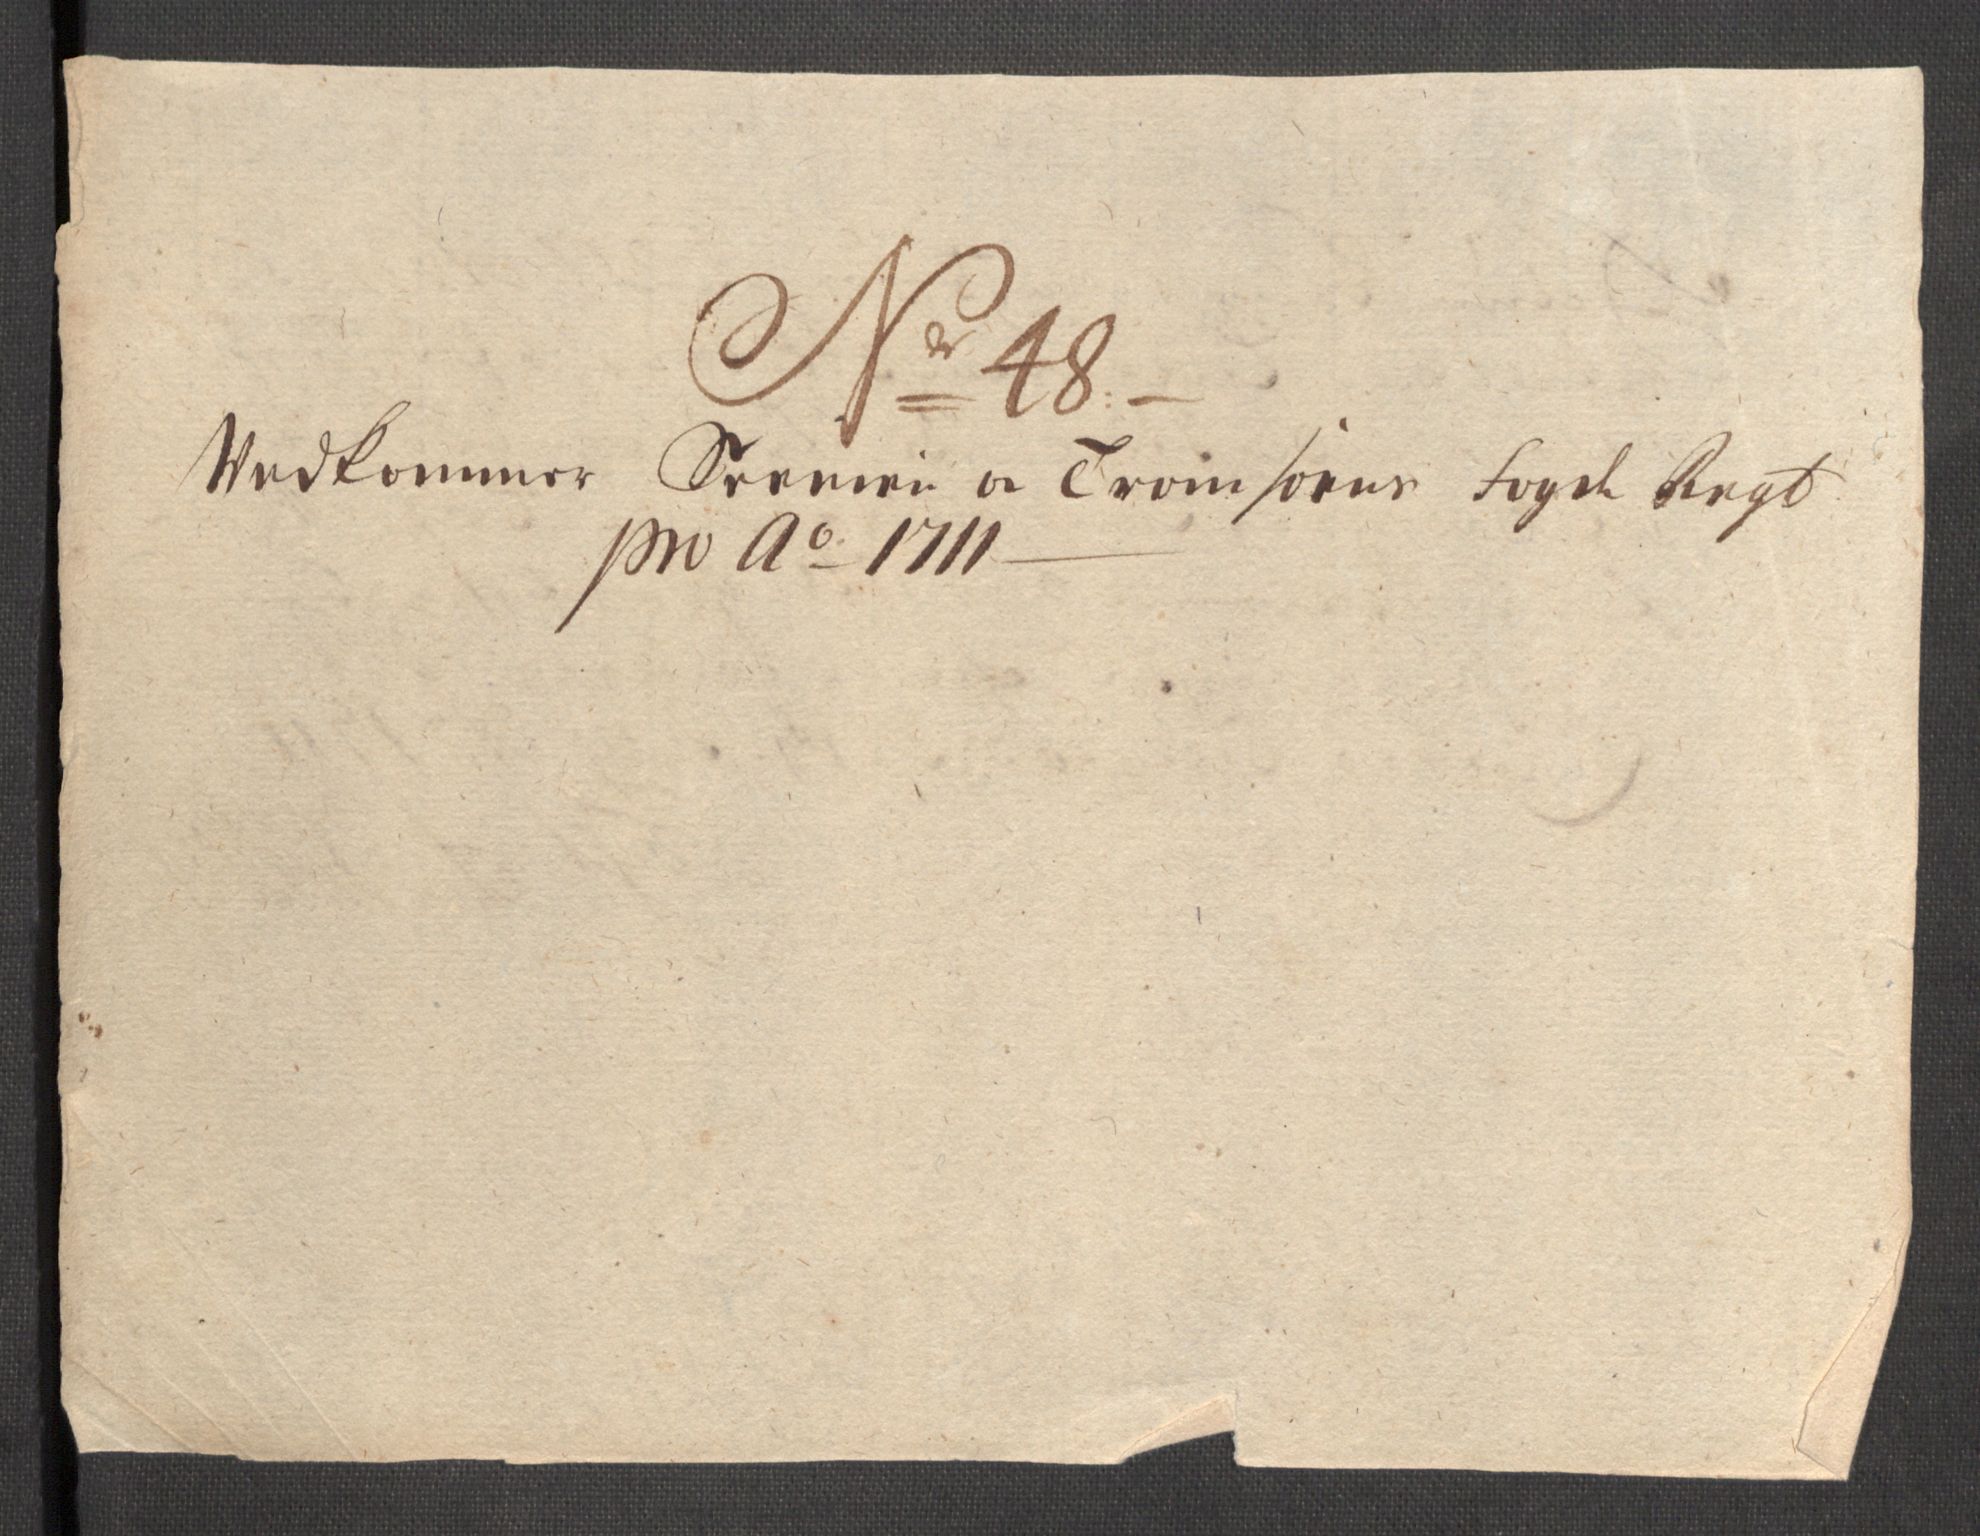 Nr 48.
Vedkommer Senniens a Tromsøens Fogde Regt
pro Ao. 1711